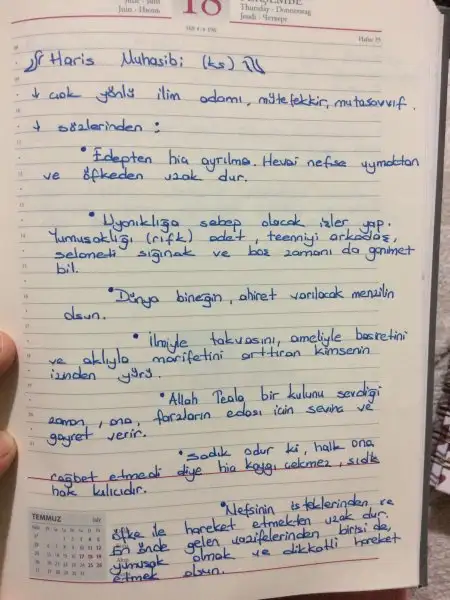 Juin - Июнь
18
Thursday - Donnerstag
Jeudi - Четверг
Hafta 25
Haris Muhasibi (ks)
↓ çok yönlü ilim adamı, mütefekkir, mutasavvıf.
↓ sözlerinden :
• Edepten hiç ayrılma. Hevai nefse uymaktan
ve öfkeden uzak dur.
• Uyanıklığa sebep olacak işler yap.
Yumuşaklığı (rıfk) adet, teenniyi arkadaş,
selameti sığınak ve boş zamanı da ganimet
bil.
• Dünya bineğin, ahiret varılacak menzilin
olsun.
• ilmiyle takvasını, ameliyle basiretini
ve aklıyla marifetini arttıran kimsenin
izinden yürü.
• Allah Teala bir kulunu sevdiği
zaman, ona, farzların edası için sevinç ve
gayret verir.
• sadık odur ki, halk ona
rağbet etmedi diye hiç kaygı çekmez, sıdk
hak kılıcıdır.
• Nefsinin isteklerinden, ve
öfke ile hareket etmekten uzak dur.
En önde gelen vazifelerinden birisi de,
yumuşak olmak ve dikkatli hareket
etmek olsun.
TEMMUZ July